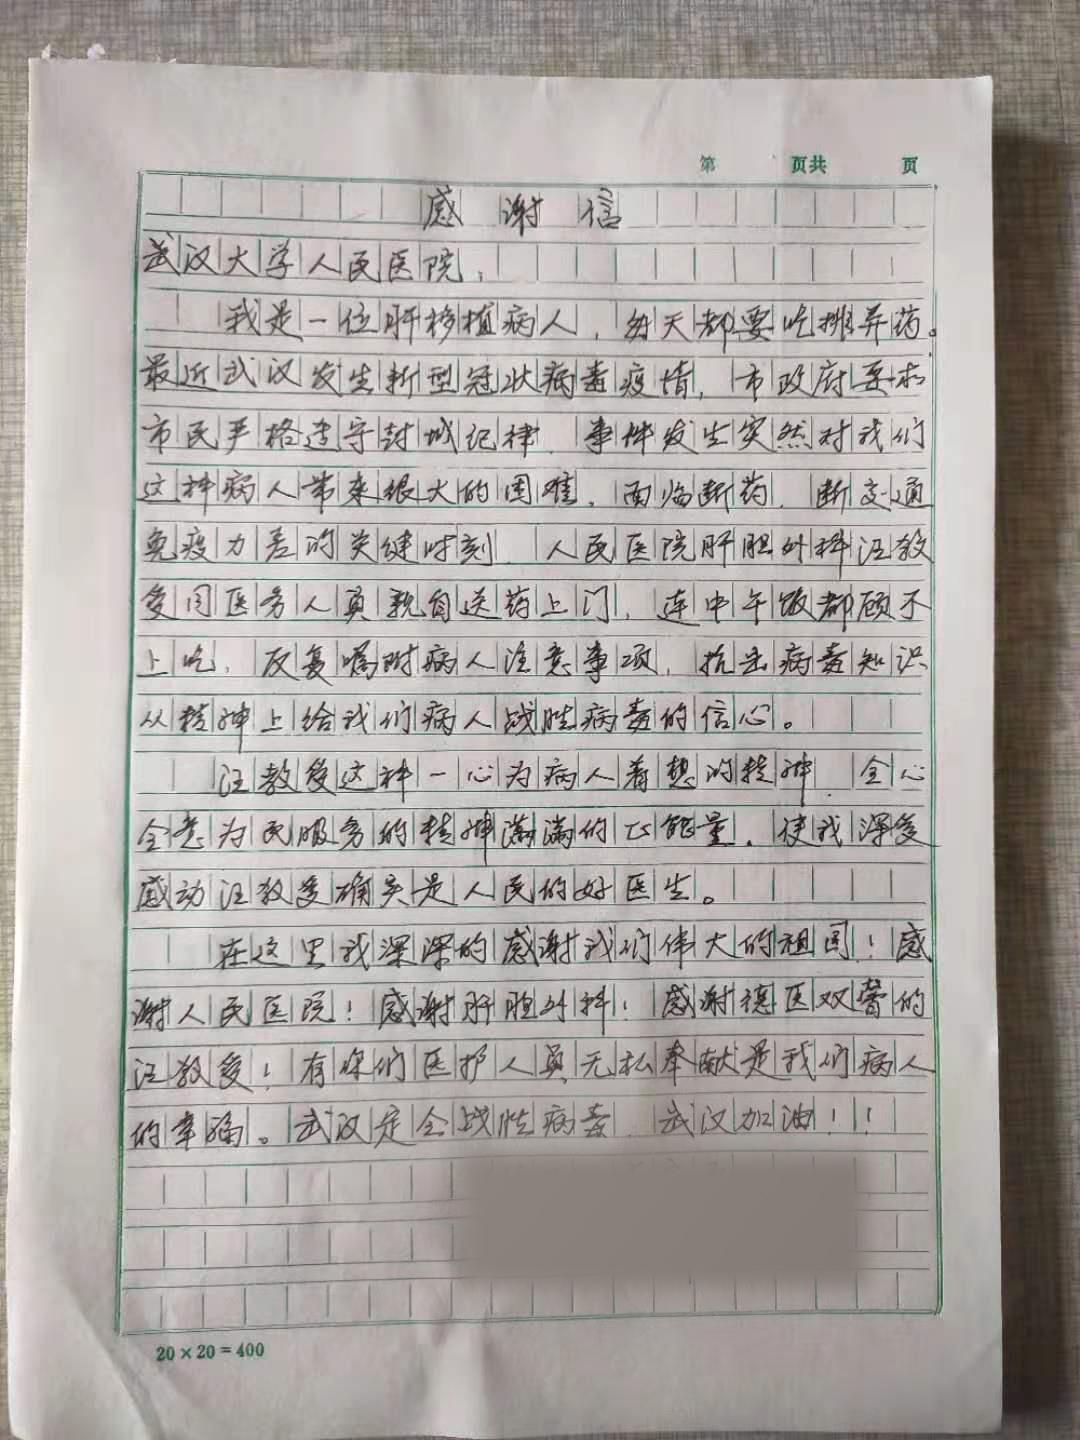 第 页共 页
感谢信
武汉大学人民医院:
我是一位肝移植病人,每天都要吃排弃药。
最近武汉发生新型冠状病毒疫情,市政府要求
市民严格遵守封城纪律.事件发生突然对我们
这种病人带来很大的困难,面临断药.断交通
免疫力差的关键时刻.人民医院肝胆外科汪教
受同医务人员亲自送药上门,连中午饭都顾不
上吃,反复嘱咐病人注意事项,抗击病毒知识
从精神上给我们病人战胜病毒的信心。
汪教受这种一心为病人着想的精神.全心
全意为民服务的精神满满的正能量.使我深受
感动汪教受确实是人民的好医生。
在这里我深深的感谢我们伟大的祖国!感
谢人民医院!感谢肝胆外科!感谢德医双馨的
汪教受!有你们医护人员无私奉献是我们病人
的幸福。武汉定会战胜病毒.武汉加油!!
20×20=400